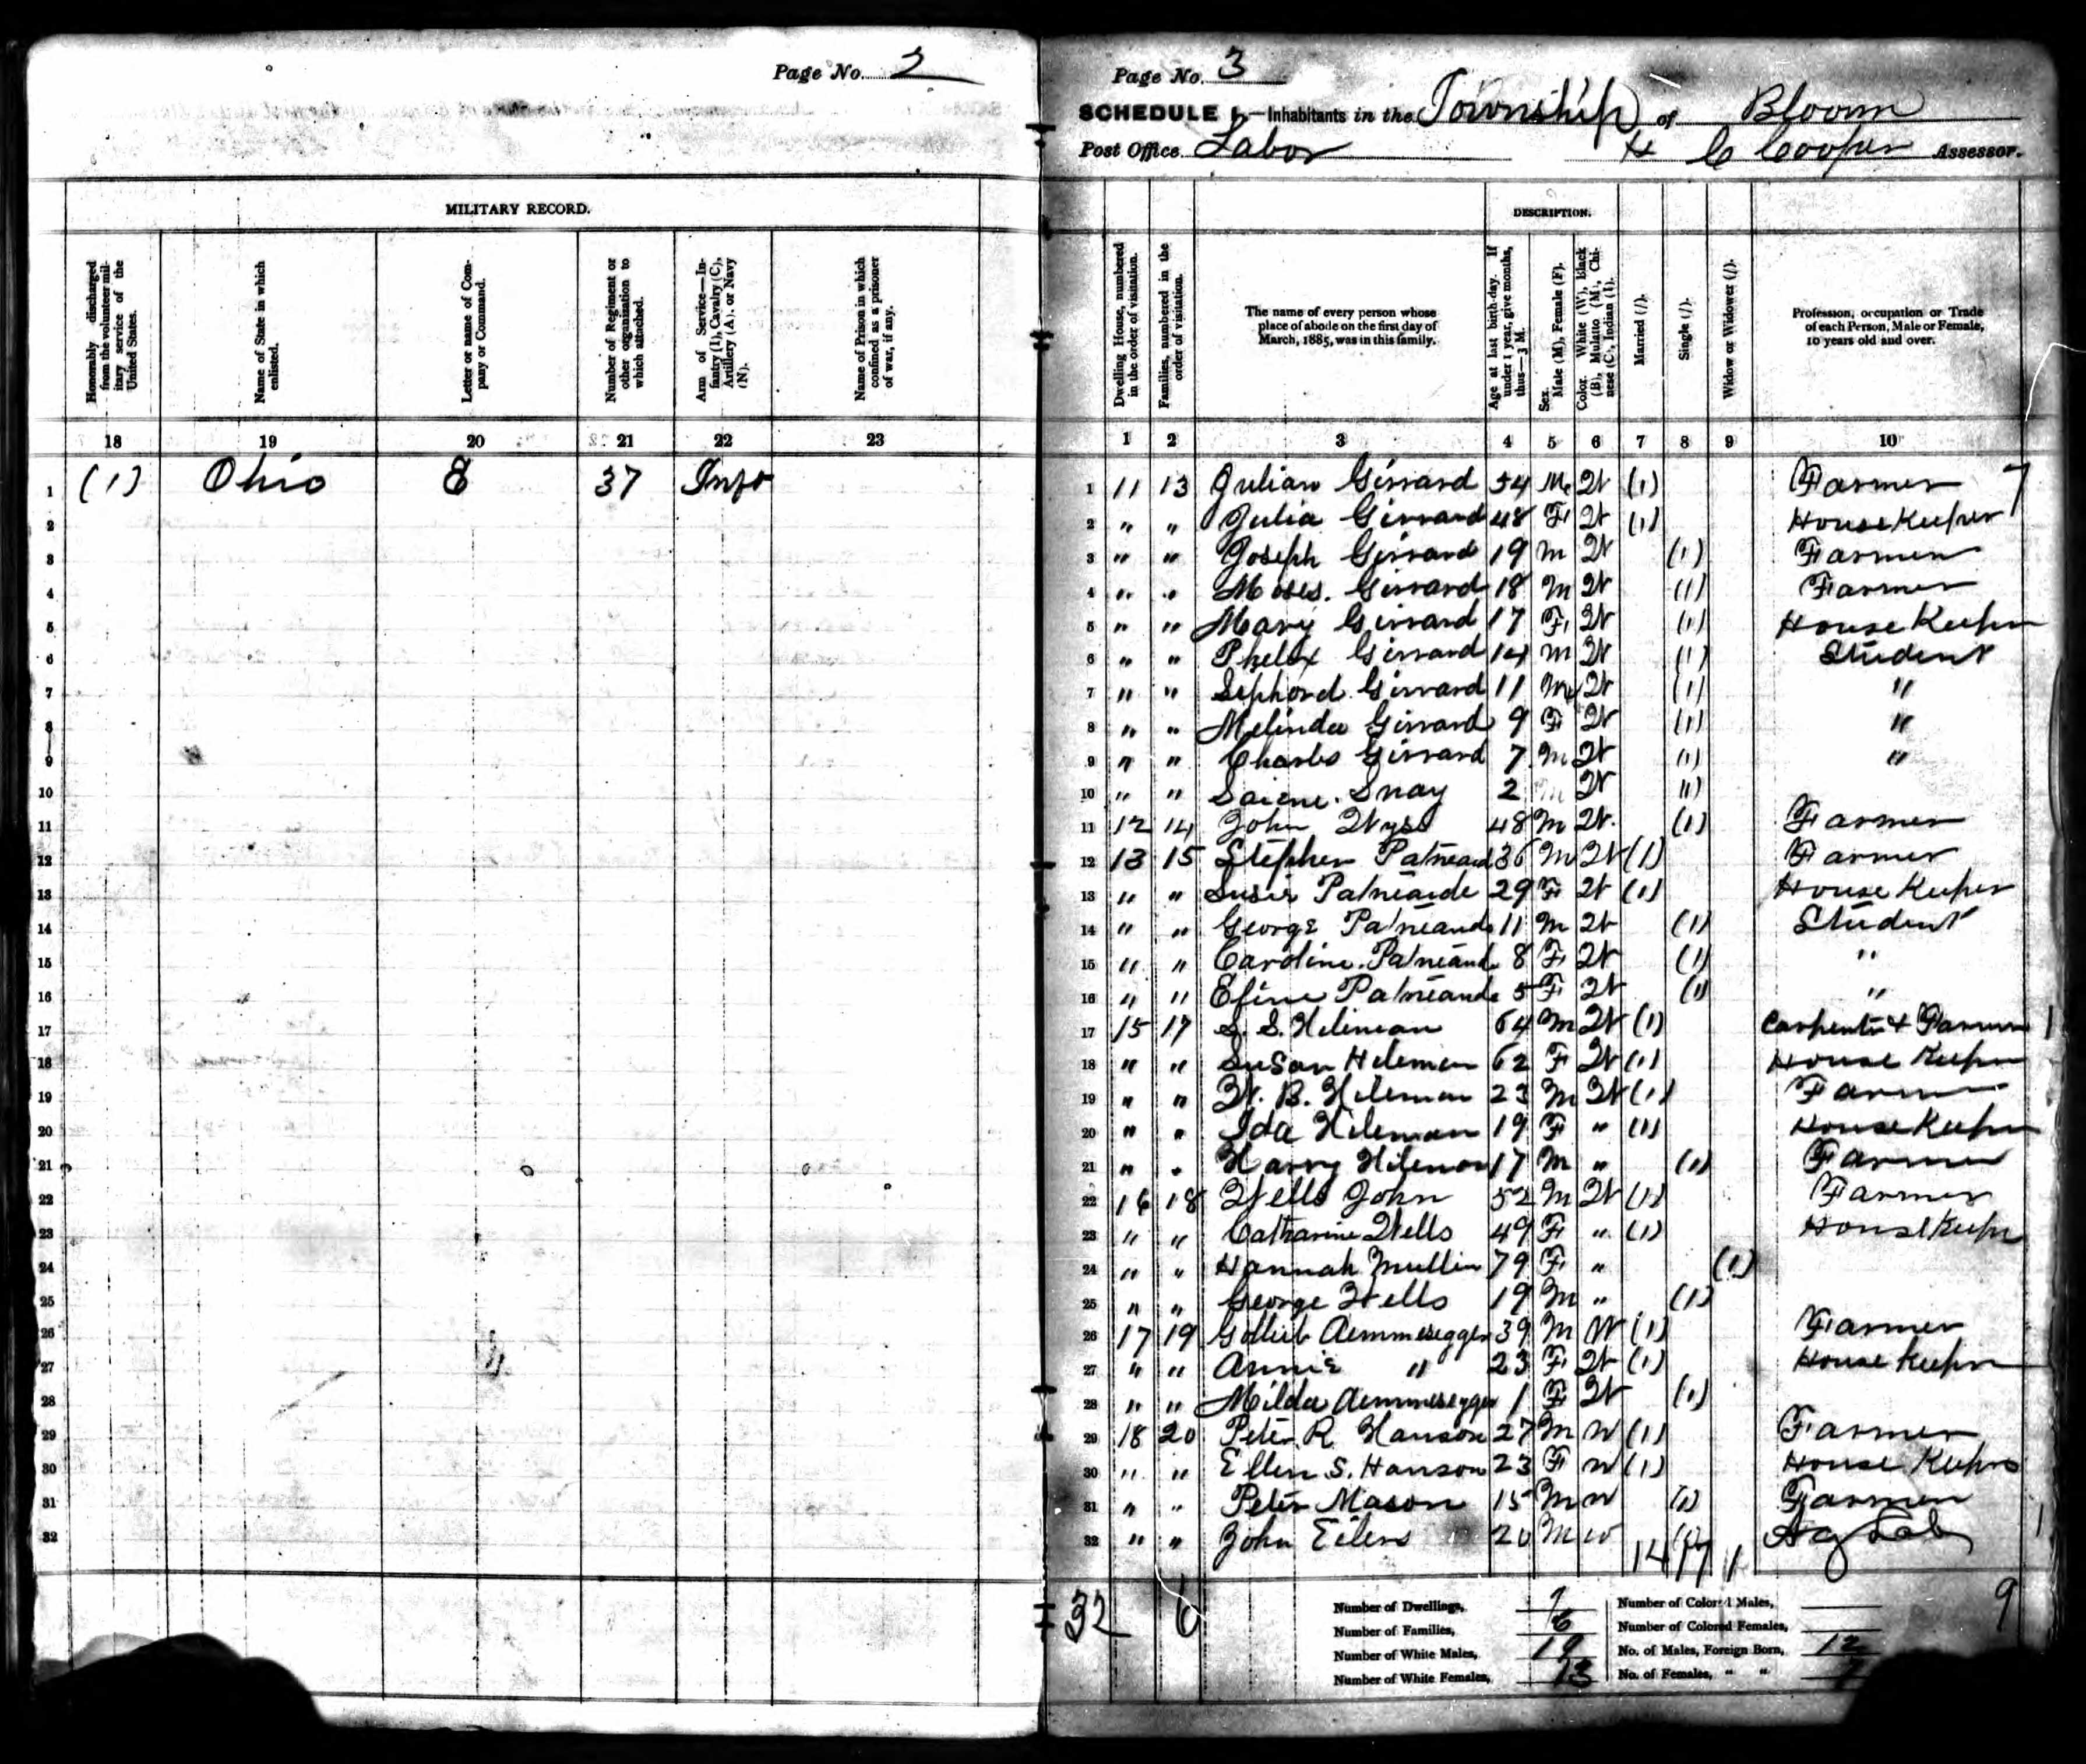 Page No. 2
MILITARY RECORD.
Honorably discharged from the volunteer military service of the United States.
Name of State in which enlisted.
Letter or name of Company or Command.
Number of Regiment or other organization to which attached.
Arm of Service—Infantry (I), Cavalry (C), Artillery (A), or Navy (N).
Name of Prison in which confined as a prisoner of war, if any.
18 19 20 21 22 23
1 (1) Ohio E 37 Inft
2
3
4
5
6
7
8
9
10
11
12
13
14
15
16
17
18
19
20
21
22
23
24
25
26
27
28
29
30
31
32
Page No. 3
SCHEDULE 1.—Inhabitants in the Township of Bloom
Post Office Labor H C Cooper Assessor.
DESCRIPTION.
Dwelling House, numbered in the order of visitation.
Families, numbered in the order of visitation.
The name of every person whose place of abode on the first day of March, 1885, was in this family.
Age at last birth-day. If under 1 year, give months, thus—3 M.
Sex. Male (M), Female (F).
Color. White (W), Black (B), Mulatto (M), Chinese (C), Indian (I).
Married (/).
Single (/).
Widow or Widower (/).
Profession, occupation or Trade of each Person, Male or Female, 10 years old and over.
1 2 3 4 5 6 7 8 9 10
1 11 13 Julian Girrard 54 M W (1) Farmer 7
2 " " Julia Girrard 48 F W (1) House Keeper
3 " " Joseph Girrard 19 M W (1) Farmer
4 " " Moses. Girrard 18 M W (1) Farmer
5 " " Mary Girrard 17 F W (1) House Keeper
6 " " Phelix Girrard 14 M W (1) Student
7 " " Sephord Girrard 11 M W (1) "
8 " " Melinda Girrard 9 F W (1) "
9 " " Charles Girrard 7 M W (1) "
10 " " Snay 2 M W (1)
11 12 14 John Wyss 48 M W. (1) Farmer
12 13 15 Stephen 36 M W (1) Farmer
13 " " Susie 29 F W (1) House Keeper
14 " " George 11 M W (1) Student
15 " " Caroline 8 F W (1) "
16 " " 5 F W (1) "
17 15 17 S. S. Hileman 64 M W (1) Carpenter & Farmer 1
18 " " Susan Hilemen 62 F W (1) House Keeper
19 " " W. B. Hileman 23 M W (1) Farmer
20 " " Ida Hileman 19 F " (1) House Keeper
21 " " Harry Hilemon 17 M " (1) Farmer
22 16 18 Wells John 52 M W (1) Farmer
23 " " Catharine Wells 49 F " (1) House Keeper
24 " " Hannah Mullin 79 F " (1)
25 " " George Wells 19 M " (1)
26 17 19 Gotlieb Aemmesegger 39 M W (1) Farmer
27 " " Annie " 23 F W (1) House Keeper
28 " " Milda Aemmesegger 1 F W (1)
29 18 20 Peter R Hanson 27 M W (1) Farmer
30 " " Ellen S. Hanson 23 F W (1) House Keeper
31 " " Peter Mason 15 M W (1) Farmer
32 " " John Eilers 20 M W (1) Ag Lab 1
14 17 1
32 6
Number of Dwellings, Number of Colored Males, 9
Number of Families, 6 Number of Colored Females,
Number of White Males, 19 No. of Males, Foreign Born, 12
Number of White Females, 13 No. of Females, " " 7